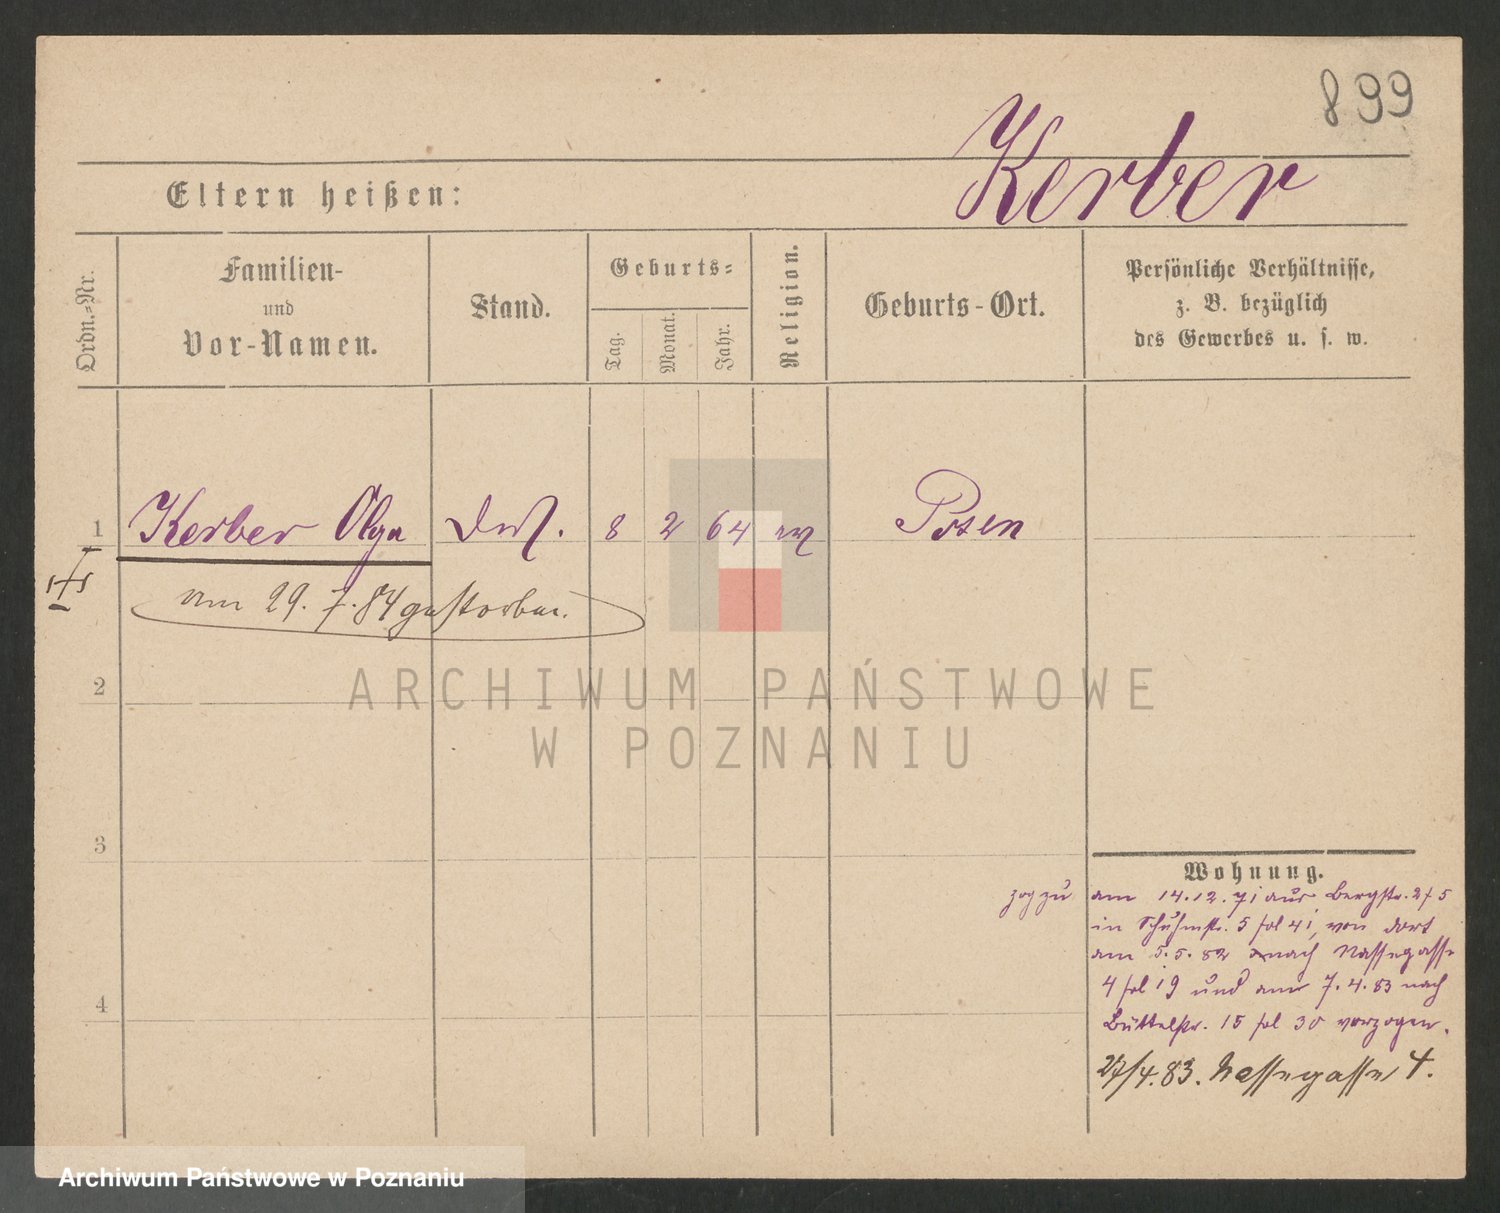 899
Kerber
Eltern heißen:
Ordn.-Nr.
Familien-
und
Vor-Namen.
Stand.
Geburts-
Tag.
Monat.
Jahr.
Religion.
Geburts-Ort.
Persönliche Verhältnisse,
z. B. bezüglich
des Gewerbes u. s. w.
1 Kerber Olga 8 2 64 Posen
am 29. 7. 84 gestorben.
2
ARCHIWUM PAŃSTWOWE
W POZNANIU
3
Wohnung.
zog zu am 14.12.71 aus Bergstr.
in Schuhmstr. 5 fol 41, von dort
am 5.5.82 nach Nassegasse
4 fol 19 und am 7.4.83 nach
Büttelstr. 15 fol 30 verzogen.
4
27/4.83. Nassegasse 4.
Archiwum Państwowe w Poznaniu